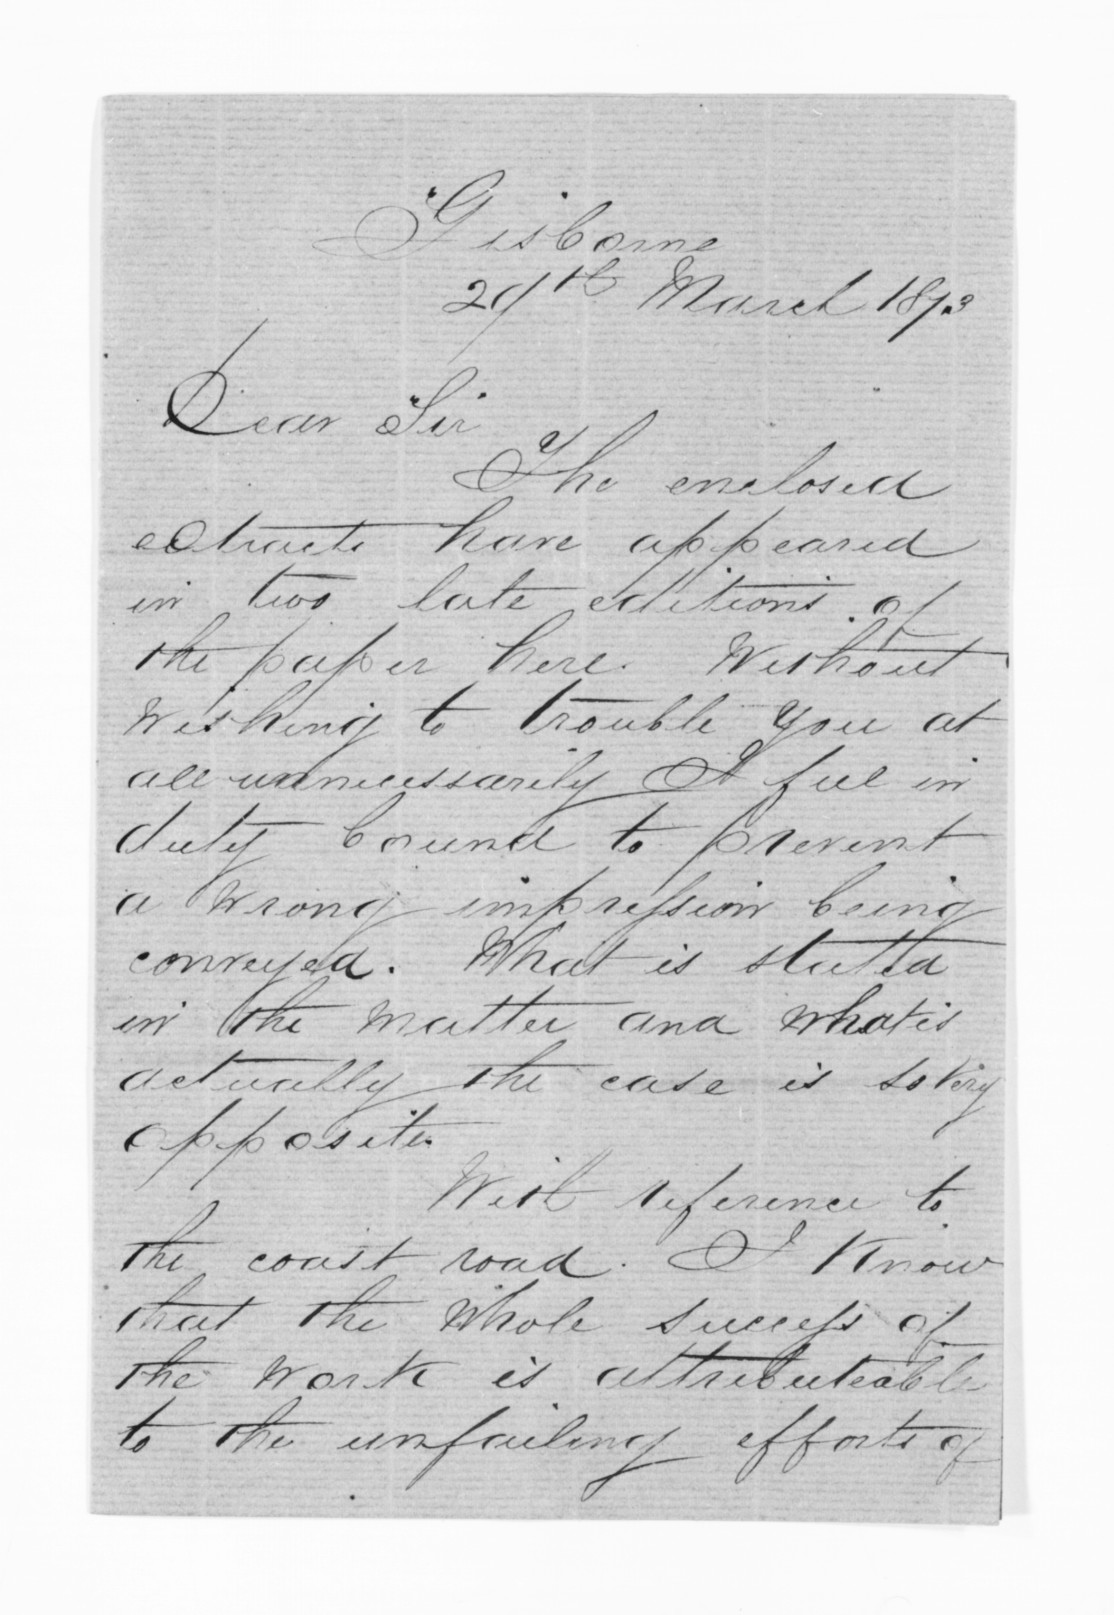 Gisborne
29th March 1873
Dear Sir
The enclosed
extracts have appeared
in two late editions of
the paper here. Without
wishing to trouble you at
all unnecessarily I feel in
duty bound to prevent
a wrong impression being
conveyed. What is statted
in the matter and what is
actually the case is so very
opposite.
With reference to
the coast road. I know
that the whole success of
the work is attributeable
to the unfailing efforts of